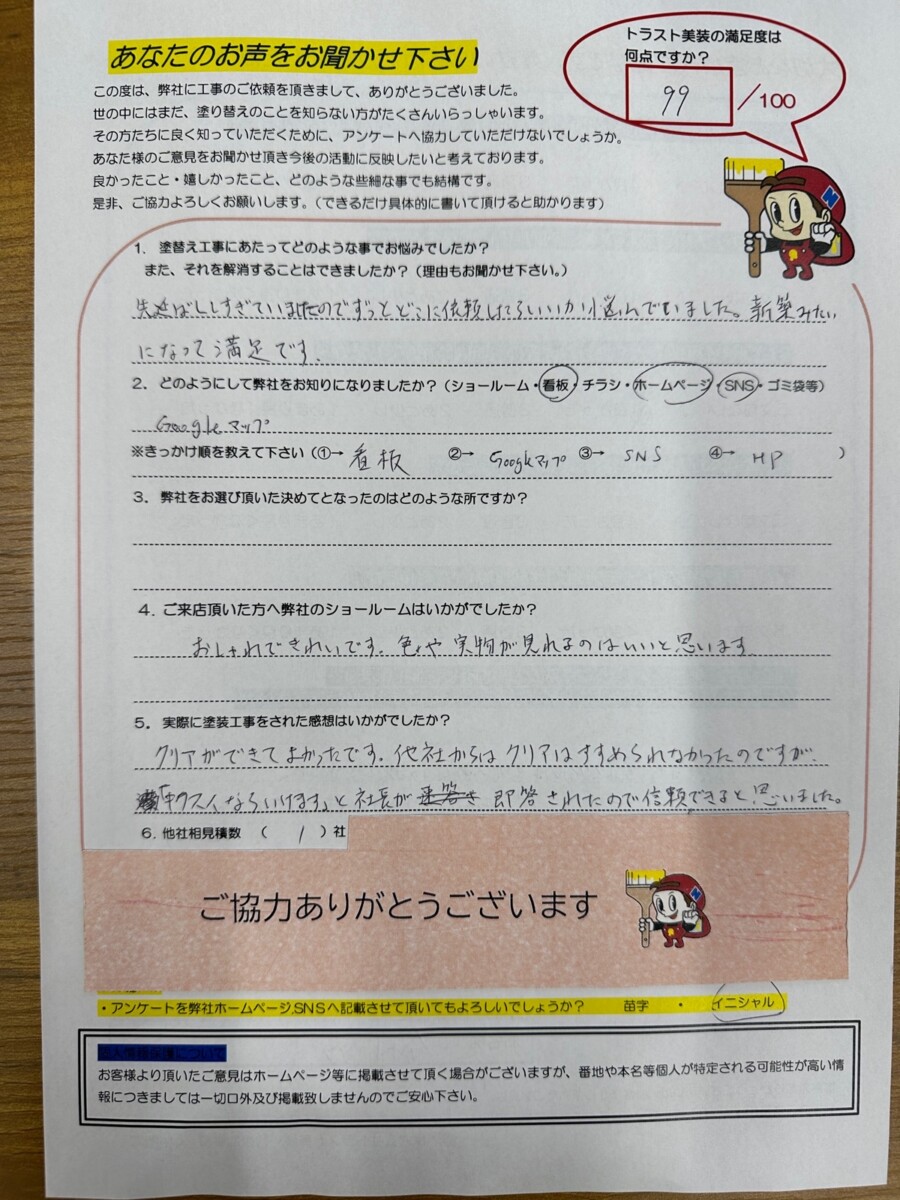 あなたのお声をお聞かせ下さい
トラスト美装の満足度は
何点ですか？
99 ／100
この度は、弊社に工事のご依頼を頂きまして、ありがとうございました。
世の中にはまだ、塗り替えのことを知らない方がたくさんいらっしゃいます。
その方たちに良く知っていただくために、アンケートへ協力していただけないでしょうか。
あなた様のご意見をお聞かせ頂き今後の活動に反映したいと考えております。
良かったこと・嬉しかったこと、どのような些細な事でも結構です。
是非、ご協力よろしくお願いします。（できるだけ具体的に書いて頂けると助かります）
N
1．塗替え工事にあたってどのような事でお悩みでしたか？
また、それを解消することはできましたか？（理由もお聞かせ下さい。）
先延ばししすぎていましたのでずっとどこに依頼したらいいか悩んでいました。新築みたい
になって満足です。
2．どのようにして弊社をお知りになりましたか？（ショールーム・看板・チラシ・ホームページ・SNS・ゴミ袋等）
Googleマップ
※きっかけ順を教えて下さい（①→ 看板 ②→ Googleマップ ③→ SNS ④→ HP ）
3．弊社をお選び頂いた決めてとなったのはどのような所ですか？
4．ご来店頂いた方へ弊社のショールームはいかがでしたか？
おしゃれできれいです。色々や実物が見れるのはいいと思います
5．実際に塗装工事をされた感想はいかがでしたか？
クリアができてよかったです。他社からはクリアはすすめられなかったのですが、
ならいけます」と社長が 即答されたので信頼できると思いました。
6．他社相見積数 （ 1 ）社
ご協力ありがとうございます
N
・アンケートを弊社ホームページ.SNSへ記載させて頂いてもよろしいでしょうか？ 苗字 ・ イニシャル
個人情報保護について
お客様より頂いたご意見はホームページ等に掲載させて頂く場合がございますが、番地や本名等個人が特定される可能性が高い情
報につきましては一切口外及び掲載致しませんのでご安心下さい。